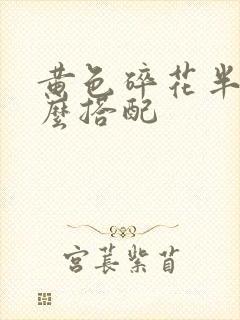 黄色碎花半
麽搭配
宫苌紫苜